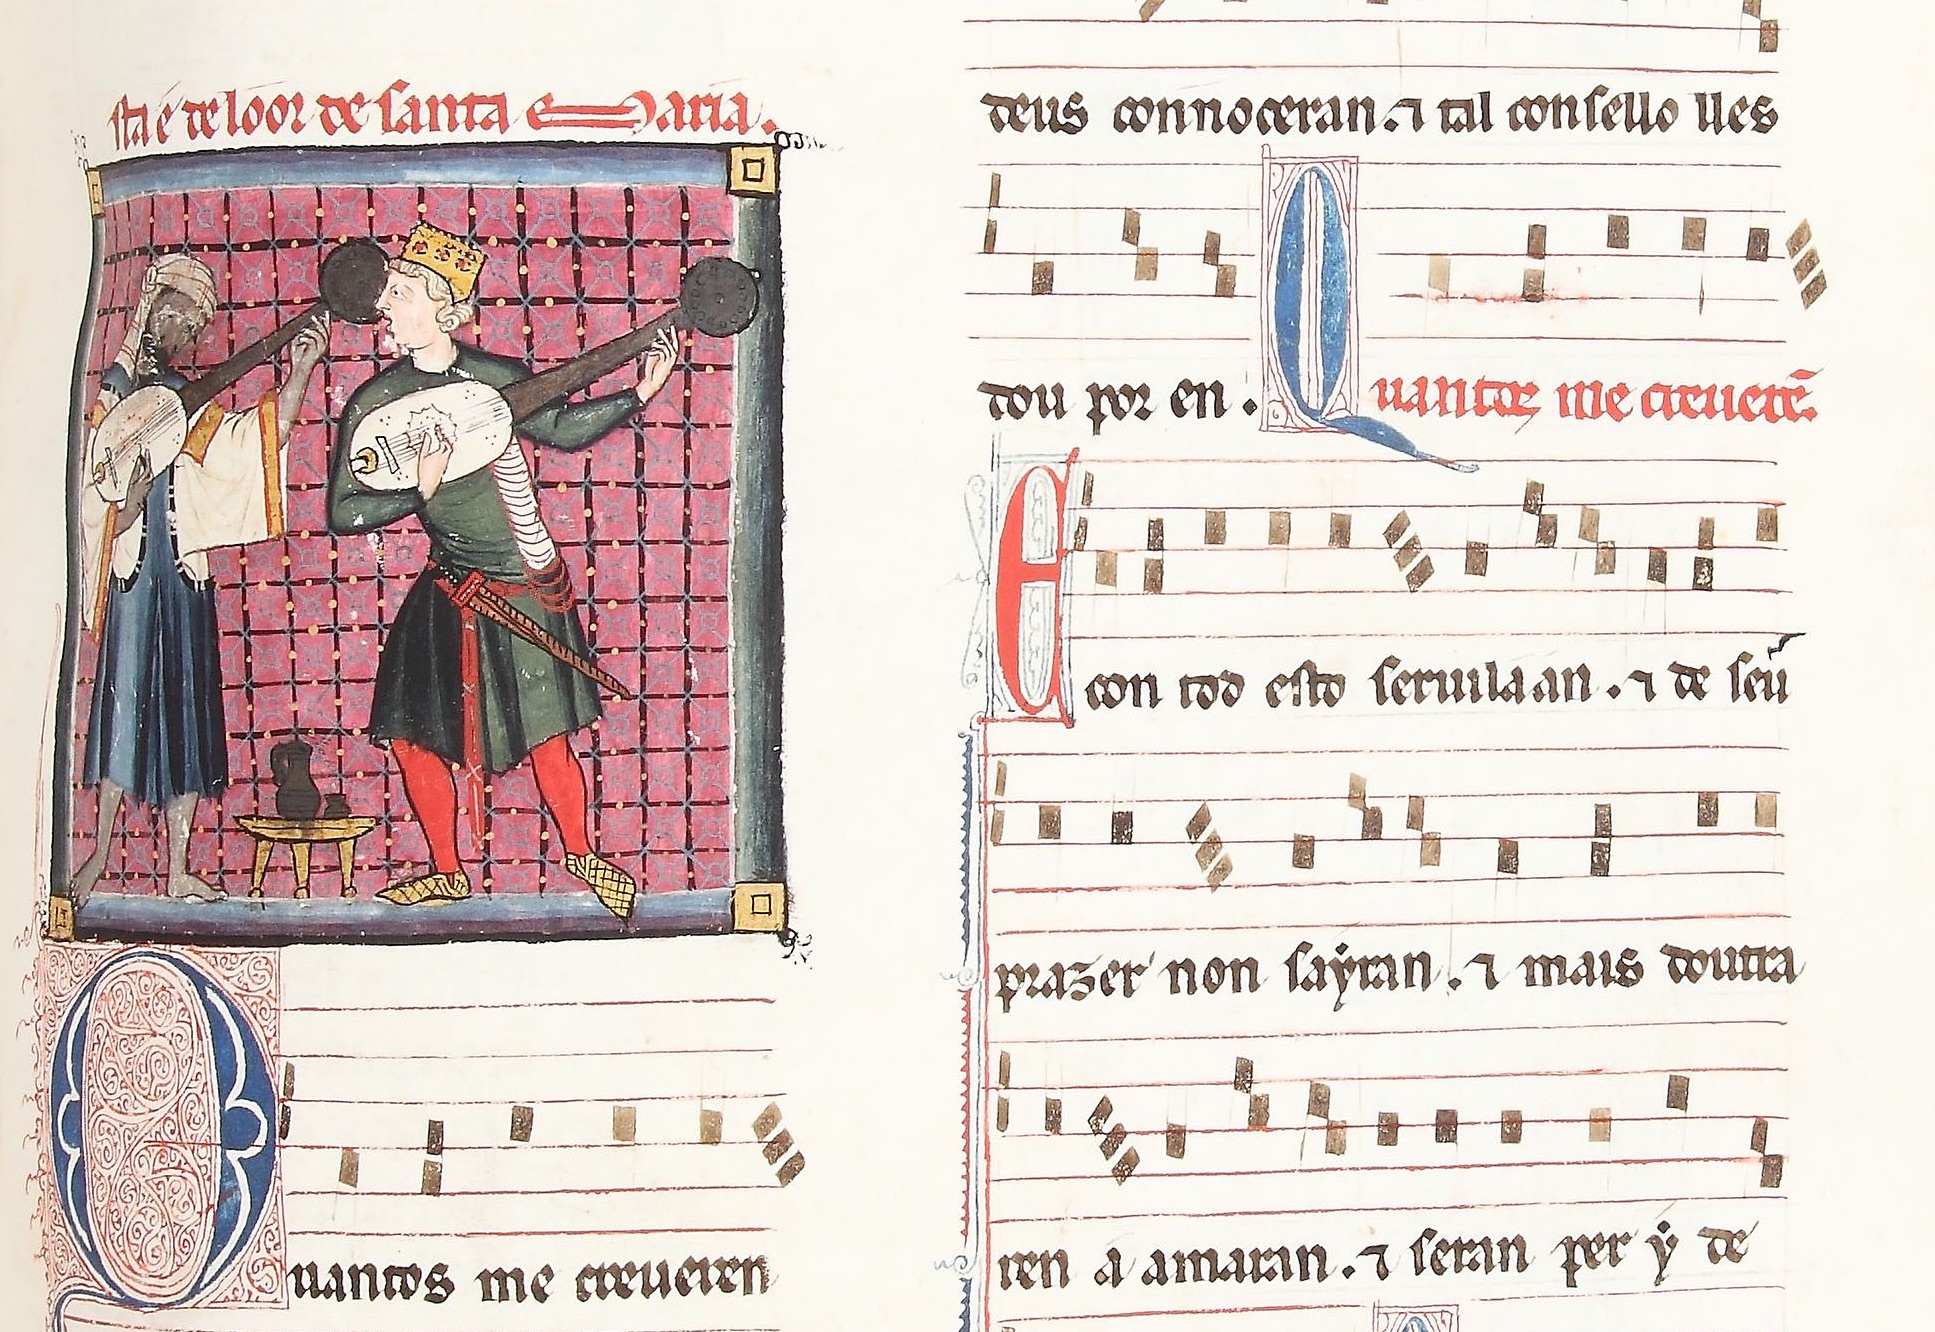 sta é de loor de santa Maria.
Quantos me creueren
deus connoceran. ⁊ tal consello lles
dou por en. Quantos me creuerẽ.
E con tod esto seruilaan. ⁊ de seu
prazer non saýran. ⁊ mais doutra
ren a amaran. ⁊ seran per ý de